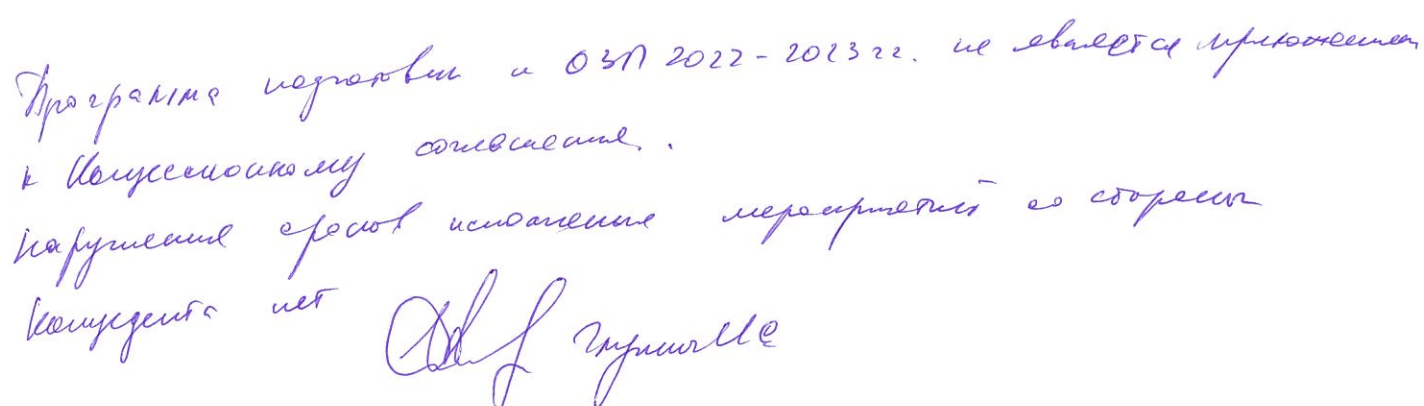 Программа подготовки к ОЗП 2022-2023 гг. не является приложением
к Концессионному соглашению.
Нарушения сроков исполнения мероприятий со стороны
Концедента нет